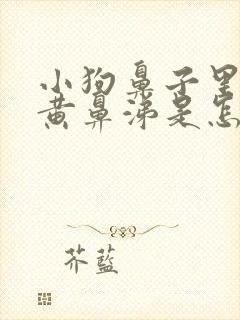 小狗鼻子里
黄鼻涕是怎
芥蓝